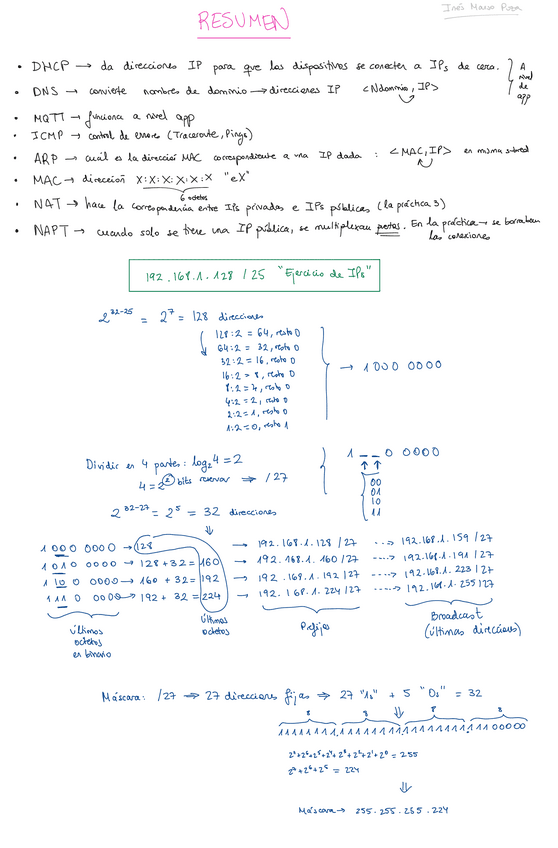 RESUMEN
• DHCP → da direcciones IP para que los dispositivos se conecten a IPs de cero. } A nivel de app
• DNS → convierte nombres de dominio → direcciones IP <Ndominio, IP>
• MQTT → funciona a nivel app
• ICMP → control de errores (Traceroute, Pings)
• ARP → cuál es la dirección MAC correspondiente a una IP dada : <MAC, IP> en misma subred
• MAC → dirección X:X:X:X:X:X "eX"
6 octetos
• NAT → hace la correspondencia entre IPs privadas e IPs públicas (la práctica 3)
• NAPT → cuando solo se tiene una IP pública, se multiplexan puertos. En la práctica → se borraban
las conexiones
192.168.1.128 /25 "Ejercicio de IPs"
2^32-25 = 2^7 = 128 direcciones
128:2 = 64, resto 0
64:2 = 32, resto 0
32:2 = 16, resto 0
16:2 = 8, resto 0
8:2 = 4, resto 0
4:2 = 2, resto 0
2:2 = 1, resto 0
1:2 = 0, resto 1
→ 1000 0000
Dividir en 4 partes: log₂4 = 2
4 = 2^2 bits reservar ⇒ /27
1 _ _ 0 0000
00
01
10
11
2^32-27 = 2^5 = 32 direcciones
1 00 0 0000 → 128 → 192.168.1.128 /27 ----> 192.168.1.159 /27
1 01 0 0000 → 128 + 32 = 160 → 192.168.1.160 /27 ----> 192.168.1.191 /27
1 10 0 0000 → 160 + 32 = 192 → 192.168.1.192 /27 ----> 192.168.1.223 /27
1 11 0 0000 → 192 + 32 = 224 → 192.168.1.224 /27 ----> 192.168.1.255 /27
últimos octetos en binario
últimos octetos
Prefijos
Broadcast
(últimas direcciones)
Máscara: /27 ⇒ 27 direcciones fijas ⇒ 27 "1s" + 5 "0s" = 32
8 8 8 8
11111111.11111111.11111111.11100000
2^7+2^6+2^5+2^4+2^3+2^2+2^1+2^0 = 255
2^7+2^6+2^5 = 224
Máscara → 255.255.255.224